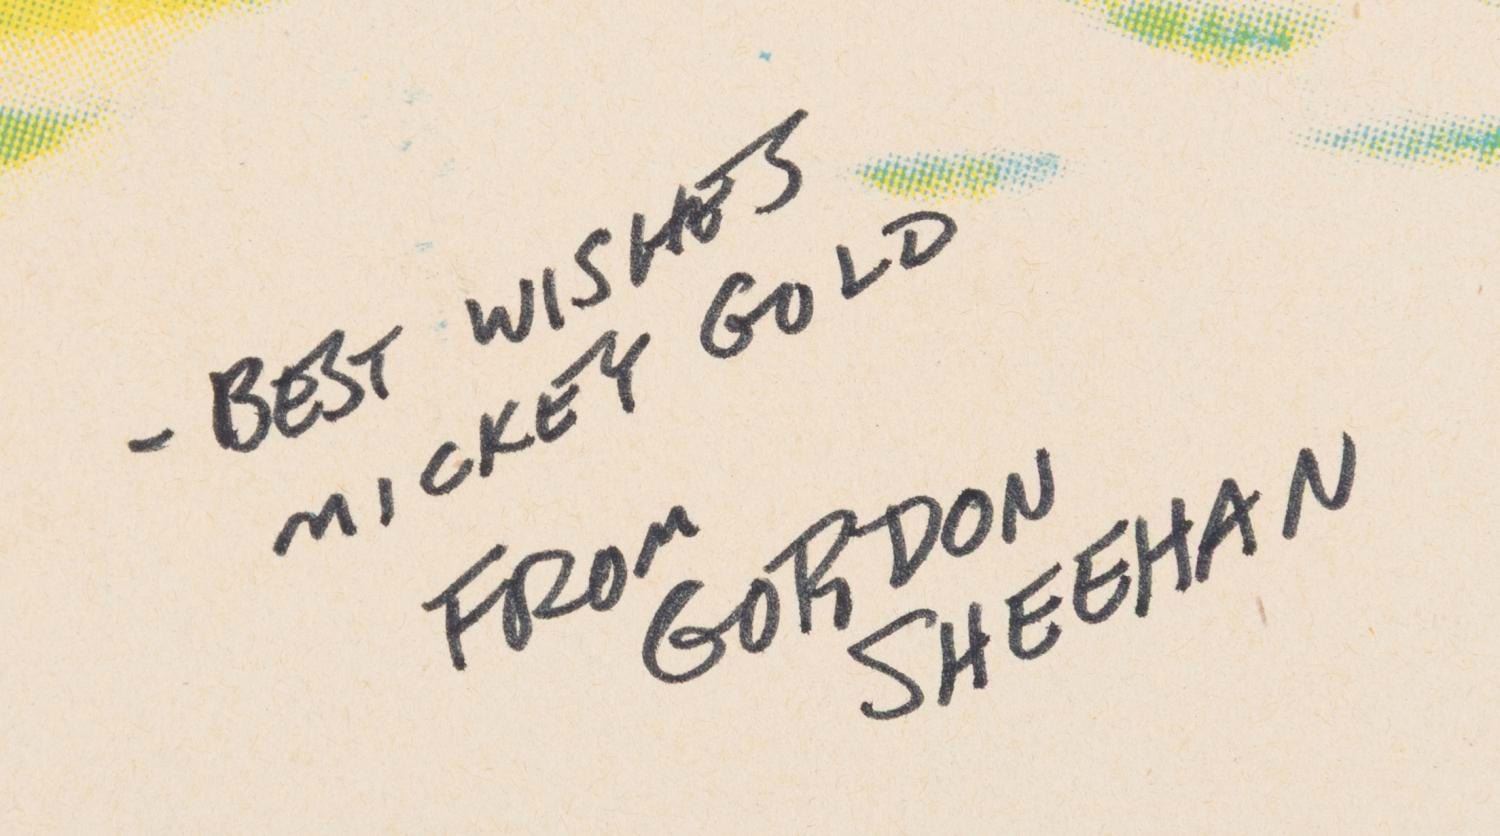 - BEST WISHES
MICKEY GOLD
FROM
GORDON
SHEEHAN